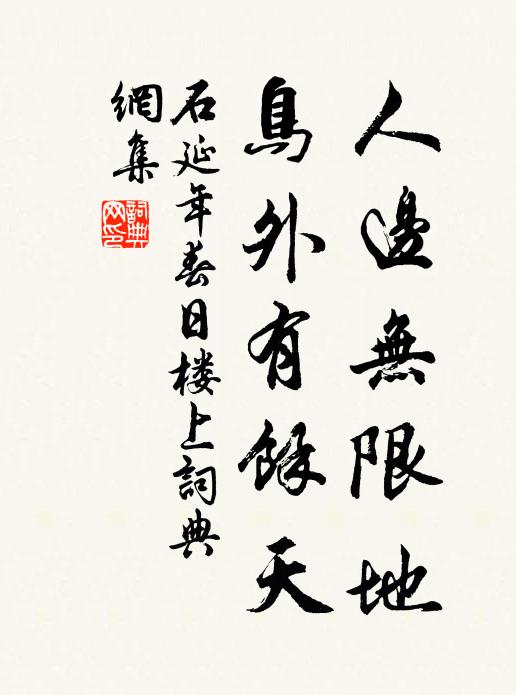 人邊無限地
鳥外有餘天
石延年春日楼上詞典
網集
詞典網印